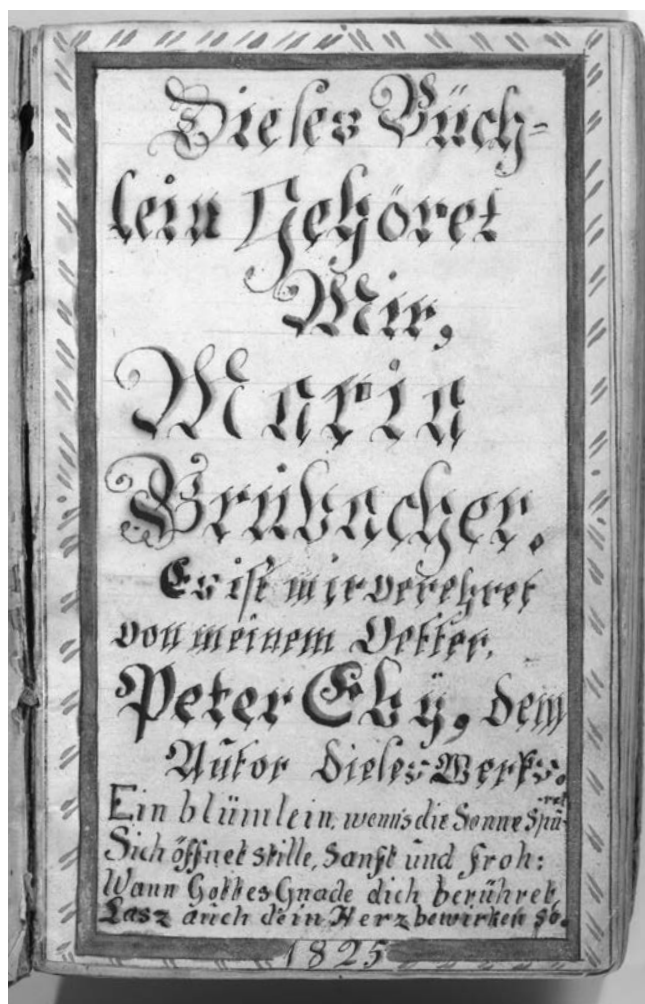 Dieses Büch-
lein Gehöret
Mir,
Maria
Brubacher.
Es ist mir verehret
von meinem Vetter,
Peter Eby, dem
Autor dieses Werks.
Ein blümlein, wenn's die Sonne Spü-
ret
Sich öffnet stille, Sanft und froh:
Wann Gottes Gnade dich berühret,
Lasz auch dein Herz bewirken so.
1825